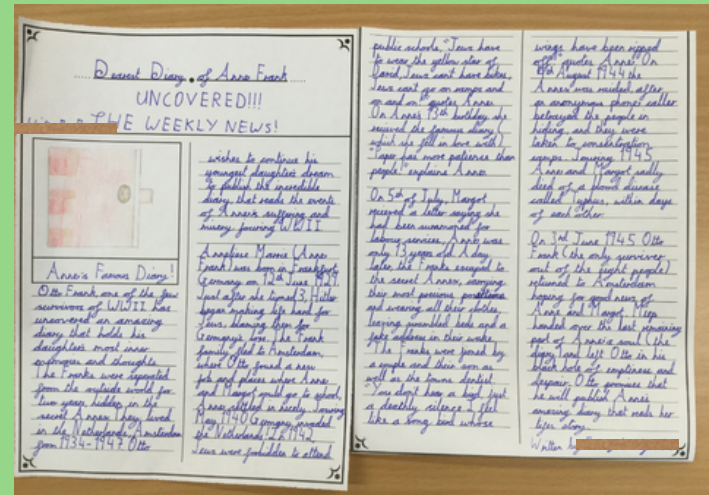 Dearest Diary of Anne Frank
UNCOVERED!!!
THE WEEKLY NEWS!
Anne's Famous Diary!
Otto Frank, one of the few
survivors of WWII has
uncovered an amazing
diary, that holds his
daughter's most inner
and thoughts.
The Franks were separated
from the outside world for
two years, hidden in the
secret Annex. They lived
in the Netherlands, Amsterdam
from 1934-1947. Otto
wishes to continue his
youngest daughter's dream
to publish the incredible
diary, that reads the events
of Anne's suffering and
misery during WWII.
Anneliese Marrie (Anne
Frank) was born in Frankfurt
Germany on 12th June 1929.
Just after she turned 3, Hitler
began making life hard for
Jews, blaming them for
Germany's loss. The Frank
family fled to Amsterdam,
where Otto found a new
job and places where Anne
and Margot could go to school,
Anne settled in nicely. Jouring
May 1940 Germany invaded
the Netherlands. In 1942,
Jews were forbidden to attend
public schools. "Jews have
to wear the yellow star of
David, Jews can't have bikes,
Jews can't go on ramps and
on and on" quotes Anne.
On Anne's 13th birthday she
received the famous diary
(which she fell in love with)
"Paper has more patience than
people" explains Anne.
On 5th of July, Margot
received a letter saying she
had been summoned for
labour services, Anne was
only 13 years old. A day
later, the Franks escaped to
the secret Annex, carrying
their most precious
and wearing all their clothes,
leaving scrambled beds and a
fake address in their wake.
The Franks were joined by
a couple and their son as
well as the towns dentist.
"You don't hear a bird, just
a deathly silence. I feel
like a song bird whose
wings have been ripped
off" quotes Anne. On
August 1944 the
Annex was raided, after
an anonymous phone caller
betrayed the people in
hiding, and they were
taken to consentration
camps. Jouring 1945
Anne and Margot sadly
died of a blood disease
called Typhus, within days
of each other.
On 3rd June 1945, Otto
Frank (the only surviver
out of the eight people)
returned to Amsterdam
hoping for good news of
Anne and Margot. Miep
handed over the last remaining
part of Anne's soul (the
diary) and left Otto in his
black hole of emptiness and
despair. Otto promises that
he will publish Anne's
amazing diary that made her
life story.
Written by